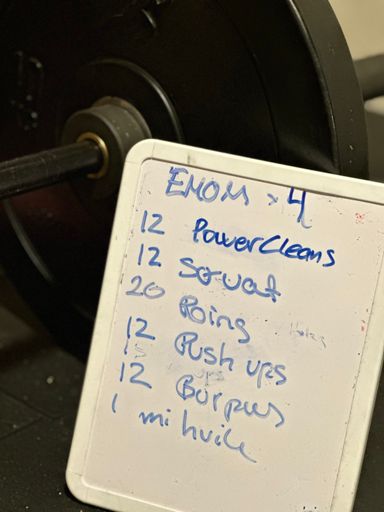 EMOM x 4
12 Powercleans
12 Squat
20 Roing
12 Push ups
12 Burpus
1 min hvile